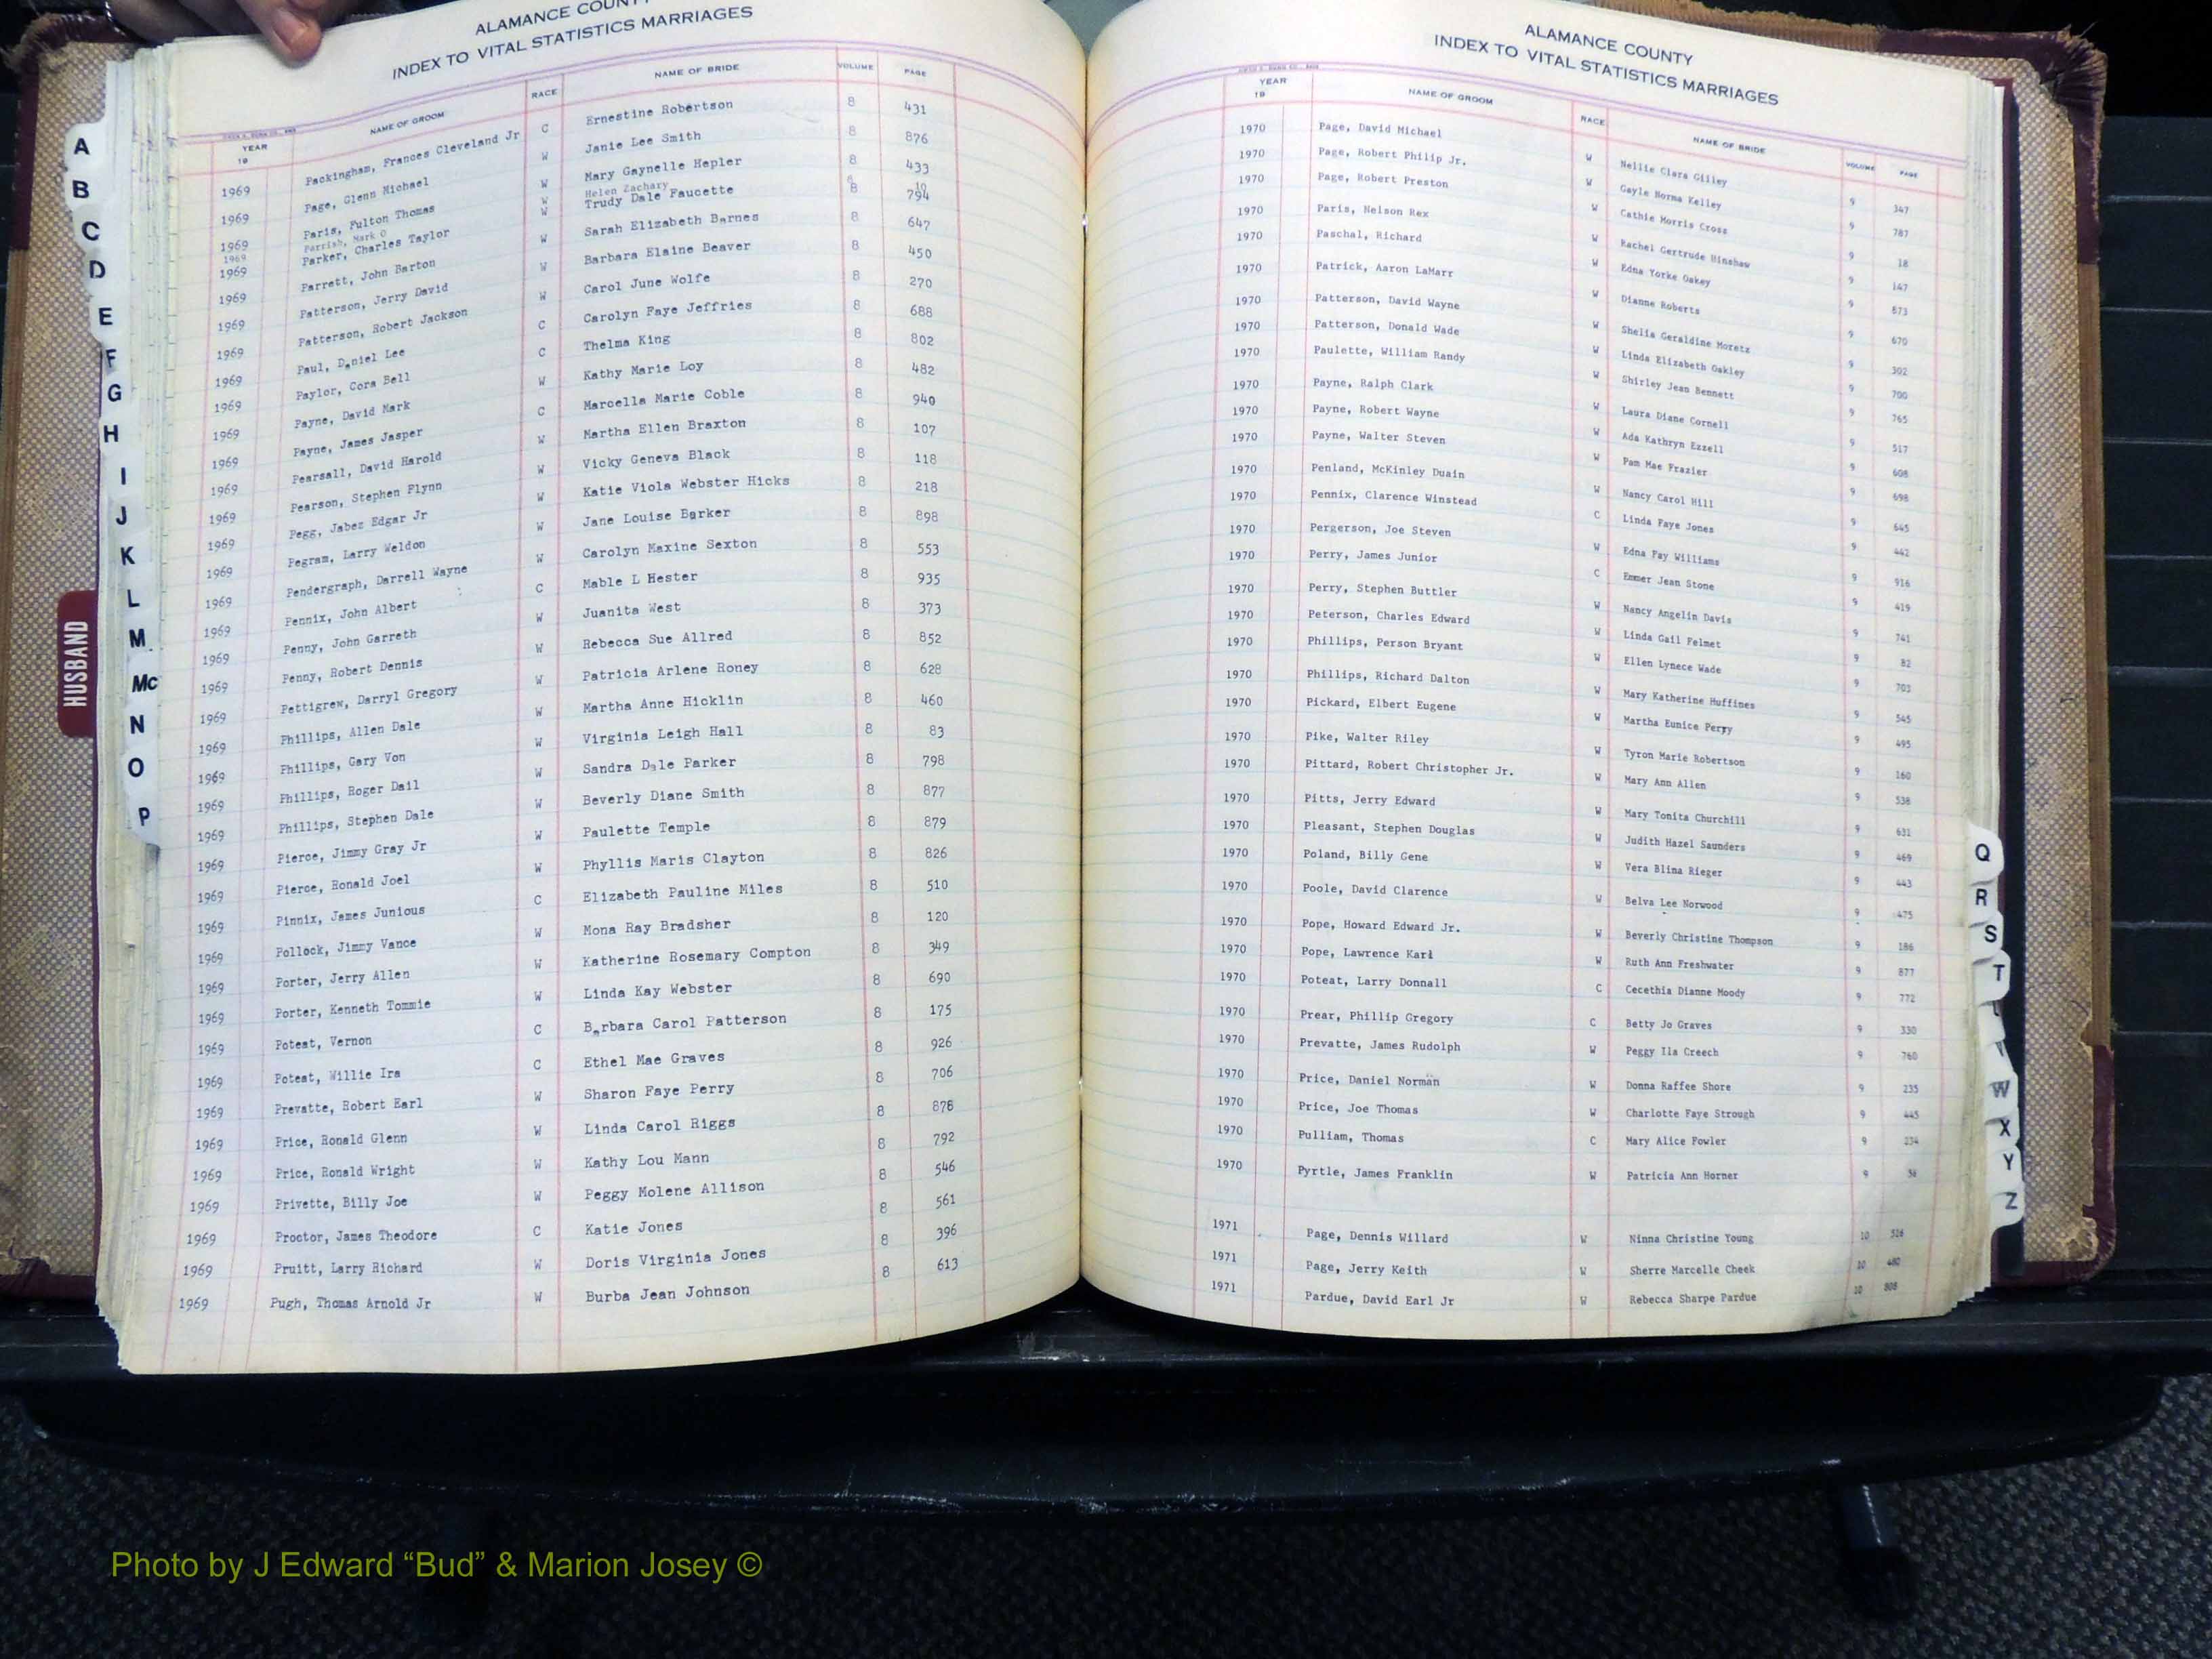 ALAMANCE COUNTY
INDEX TO VITAL STATISTICS MARRIAGES
YEAR 19 NAME OF GROOM RACE NAME OF BRIDE VOLUME PAGE
1969 Packingham, Frances Cleveland Jr C Ernestine Robertson 8 431
1969 Page, Glenn Michael W Janie Lee Smith 8 876
1969 Paris, Fulton Thomas W Mary Gaynelle Hepler 8 433
1969 Parrish, Mark O W Helen Zachary 10
1969 Parker, Charles Taylor W Trudy Dale Faucette 8 794
1969 Parrett, John Barton W Sarah Elizabeth Barnes 8 647
1969 Patterson, Jerry David W Barbara Elaine Beaver 8 450
1969 Patterson, Robert Jackson W Carol June Wolfe 8 270
1969 Paul, Daniel Lee C Carolyn Faye Jeffries 8 688
1969 Paylor, Cora Bell C Thelma King 8 802
1969 Payne, David Mark W Kathy Marie Loy 8 482
1969 Payne, James Jasper C Marcella Marie Coble 8 940
1969 Pearsall, David Harold W Martha Ellen Braxton 8 107
1969 Pearson, Stephen Flynn W Vicky Geneva Black 8 118
1969 Pegg, Jabez Edgar Jr W Katie Viola Webster Hicks 8 218
1969 Pegram, Larry Weldon W Jane Louise Barker 8 898
1969 Pendergraph, Darrell Wayne W Carolyn Maxine Sexton 8 553
1969 Pennix, John Albert C Mable L Hester 8 935
1969 Penny, John Garreth W Juanita West 8 373
1969 Penny, Robert Dennis W Rebecca Sue Allred 8 852
1969 Pettigrew, Darryl Gregory W Patricia Arlene Roney 8 628
1969 Phillips, Allen Dale W Martha Anne Hicklin 8 460
1969 Phillips, Gary Von W Virginia Leigh Hall 8 83
1969 Phillips, Roger Dail W Sandra Dale Parker 8 798
1969 Phillips, Stephen Dale W Beverly Diane Smith 8 877
1969 Pierce, Jimmy Gray Jr W Paulette Temple 8 879
1969 Pierce, Ronald Joel W Phyllis Maris Clayton 8 826
1969 Pinnix, James Junious C Elizabeth Pauline Miles 8 510
1969 Pollock, Jimmy Vance W Mona Ray Bradsher 8 120
1969 Porter, Jerry Allen W Katherine Rosemary Compton 8 349
1969 Porter, Kenneth Tommie W Linda Kay Webster 8 690
1969 Poteat, Vernon C Barbara Carol Patterson 8 175
1969 Poteat, Willie Ira C Ethel Mae Graves 8 926
1969 Prevatte, Robert Earl W Sharon Faye Perry 8 706
1969 Price, Ronald Glenn W Linda Carol Riggs 8 876
1969 Price, Ronald Wright W Kathy Lou Mann 8 792
1969 Privette, Billy Joe W Peggy Molene Allison 8 546
1969 Proctor, James Theodore C Katie Jones 8 561
1969 Pruitt, Larry Richard W Doris Virginia Jones 8 396
1969 Pugh, Thomas Arnold Jr W Burba Jean Johnson 8 613
ALAMANCE COUNTY
INDEX TO VITAL STATISTICS MARRIAGES
YEAR 19 NAME OF GROOM RACE NAME OF BRIDE VOLUME PAGE
1970 Page, David Michael W Nellie Clara Gilley 9 347
1970 Page, Robert Philip Jr. W Gayle Norma Kelley 9 787
1970 Page, Robert Preston W Cathie Morris Cross 9 18
1970 Paris, Nelson Rex W Rachel Gertrude Hinshaw 9 147
1970 Paschal, Richard W Edna Yorke Oakey 9 673
1970 Patrick, Aaron LaMarr W Dianne Roberts 9 670
1970 Patterson, David Wayne W Shelia Geraldine Moretz 9 302
1970 Patterson, Donald Wade W Linda Elizabeth Oakley 9 700
1970 Paulette, William Randy W Shirley Jean Bennett 9 765
1970 Payne, Ralph Clark W Laura Diane Cornell 9 517
1970 Payne, Robert Wayne W Ada Kathryn Ezzell 9 608
1970 Payne, Walter Steven W Pam Mae Frazier 9 698
1970 Penland, McKinley Duain W Nancy Carol Hill 9 645
1970 Pennix, Clarence Winstead C Linda Faye Jones 9 442
1970 Pergerson, Joe Steven W Edna Fay Williams 9 916
1970 Perry, James Junior C Emmer Jean Stone 9 419
1970 Perry, Stephen Buttler W Nancy Angelin Davis 9 741
1970 Peterson, Charles Edward W Linda Gail Felmet 9 82
1970 Phillips, Person Bryant W Ellen Lynece Wade 9 703
1970 Phillips, Richard Dalton W Mary Katherine Huffines 9 545
1970 Pickard, Elbert Eugene W Martha Eunice Perry 9 495
1970 Pike, Walter Riley W Tyron Marie Robertson 9 160
1970 Pittard, Robert Christopher Jr. W Mary Ann Allen 9 538
1970 Pitts, Jerry Edward W Mary Tonita Churchill 9 631
1970 Pleasant, Stephen Douglas W Judith Hazel Saunders 9 469
1970 Poland, Billy Gene W Vera Blina Rieger 9 443
1970 Poole, David Clarence W Belva Lee Norwood 9 475
1970 Pope, Howard Edward Jr. W Beverly Christine Thompson 9 186
1970 Pope, Lawrence Karl W Ruth Ann Freshwater 9 877
1970 Poteat, Larry Donnall C Cecethia Dianne Moody 9 772
1970 Prear, Phillip Gregory C Betty Jo Graves 9 330
1970 Prevatte, James Rudolph W Peggy Ila Creech 9 760
1970 Price, Daniel Norman W Donna Raffee Shore 9 235
1970 Price, Joe Thomas W Charlotte Faye Strough 9 445
1970 Pulliam, Thomas C Mary Alice Fowler 9 234
1970 Pyrtle, James Franklin W Patricia Ann Horner 9
1971 Page, Dennis Willard W Ninna Christine Young 10 526
1971 Page, Jerry Keith W Sherre Marcelle Cheek 10 480
1971 Pardue, David Earl Jr W Rebecca Sharpe Pardue 10 808
HUSBAND
A
B
C
D
E
F
G
H
I
J
K
L
M
Mc
N
O
P
Q
R
S
T
W
X
Y
Z
Photo by J Edward “Bud” & Marion Josey ©